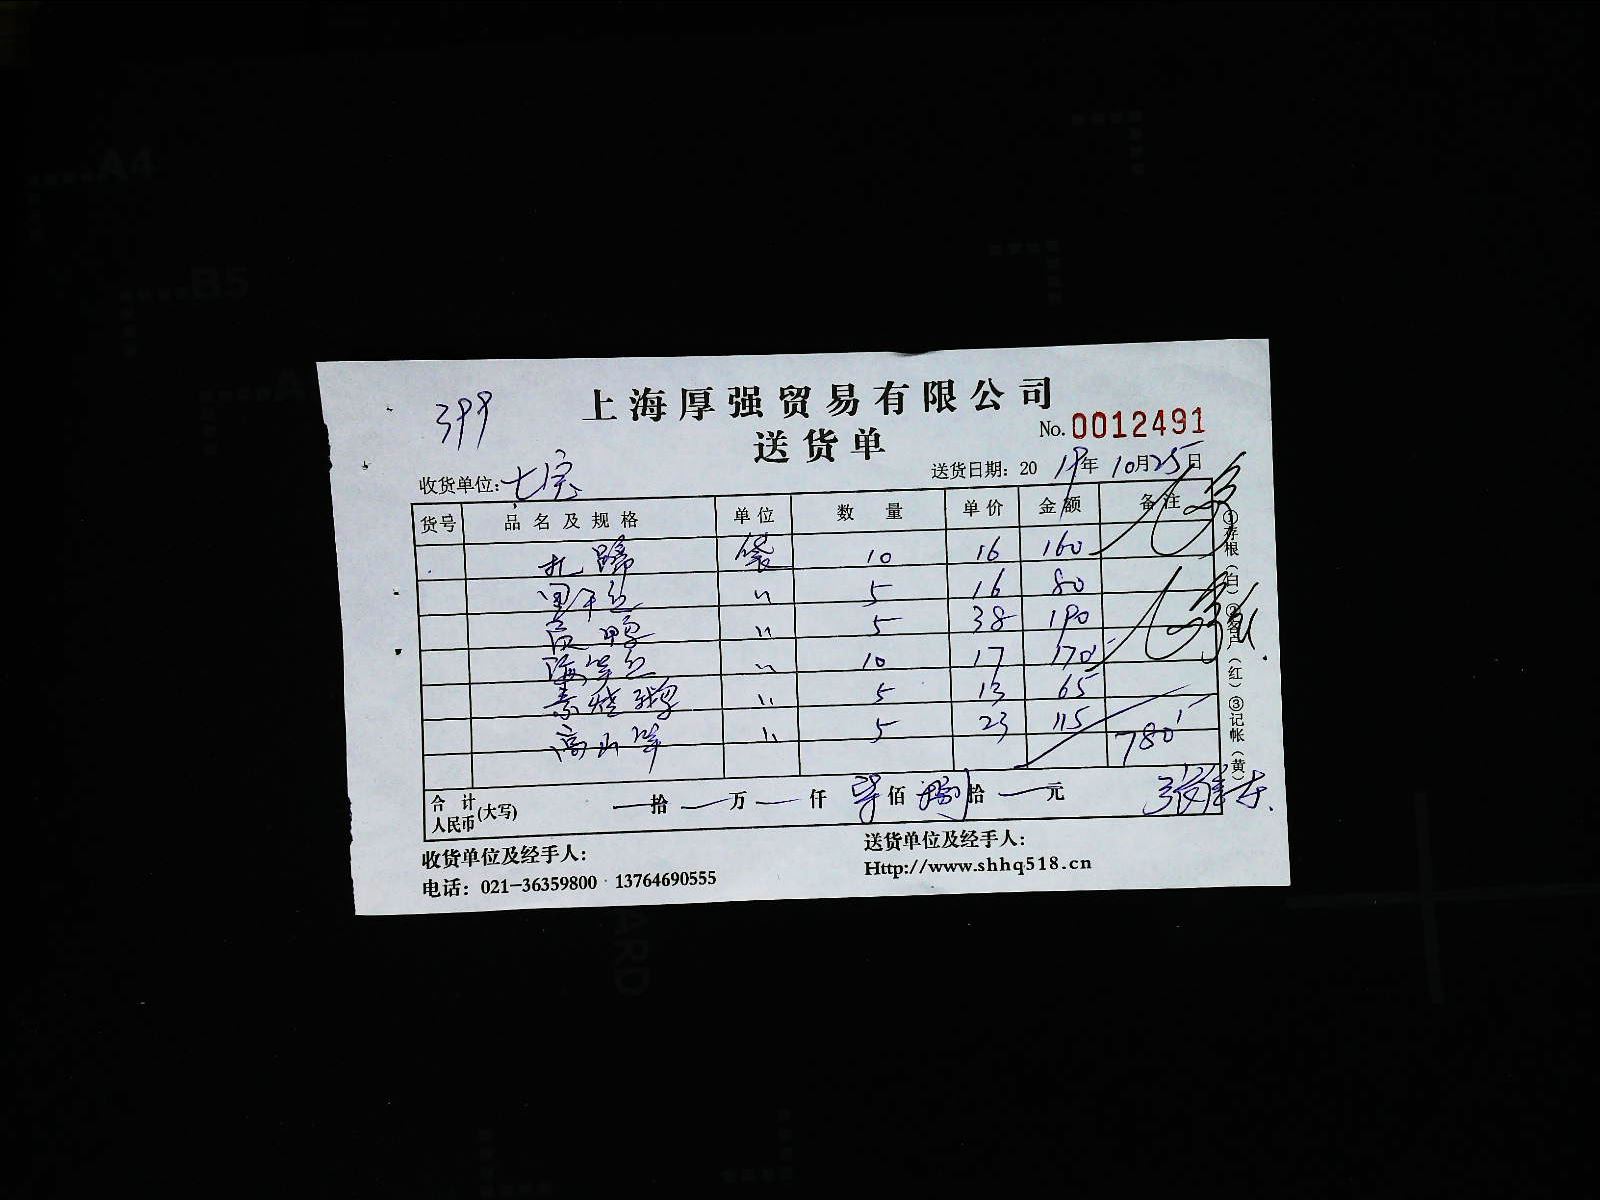 399
上海厚强贸易有限公司
送货单
No. 0012491
收货单位：七宝
送货日期：2019年10月25日
货号 品名及规格 单位 数量 单价 金额 备注
扎蹄 袋 10 16 160
〃 5 16 80
〃 5 38 190
海笋丝 〃 10 17 170
素烧鹅 〃 5 13 65
高山笋 〃 5 23 115
780
合计人民币(大写) 一拾一万一仟柒佰捌拾一元
收货单位及经手人：
送货单位及经手人：
电话：021-36359800 · 13764690555
Http://www.shhq518.cn
①存根（白）②客户（红）③记帐（黄）